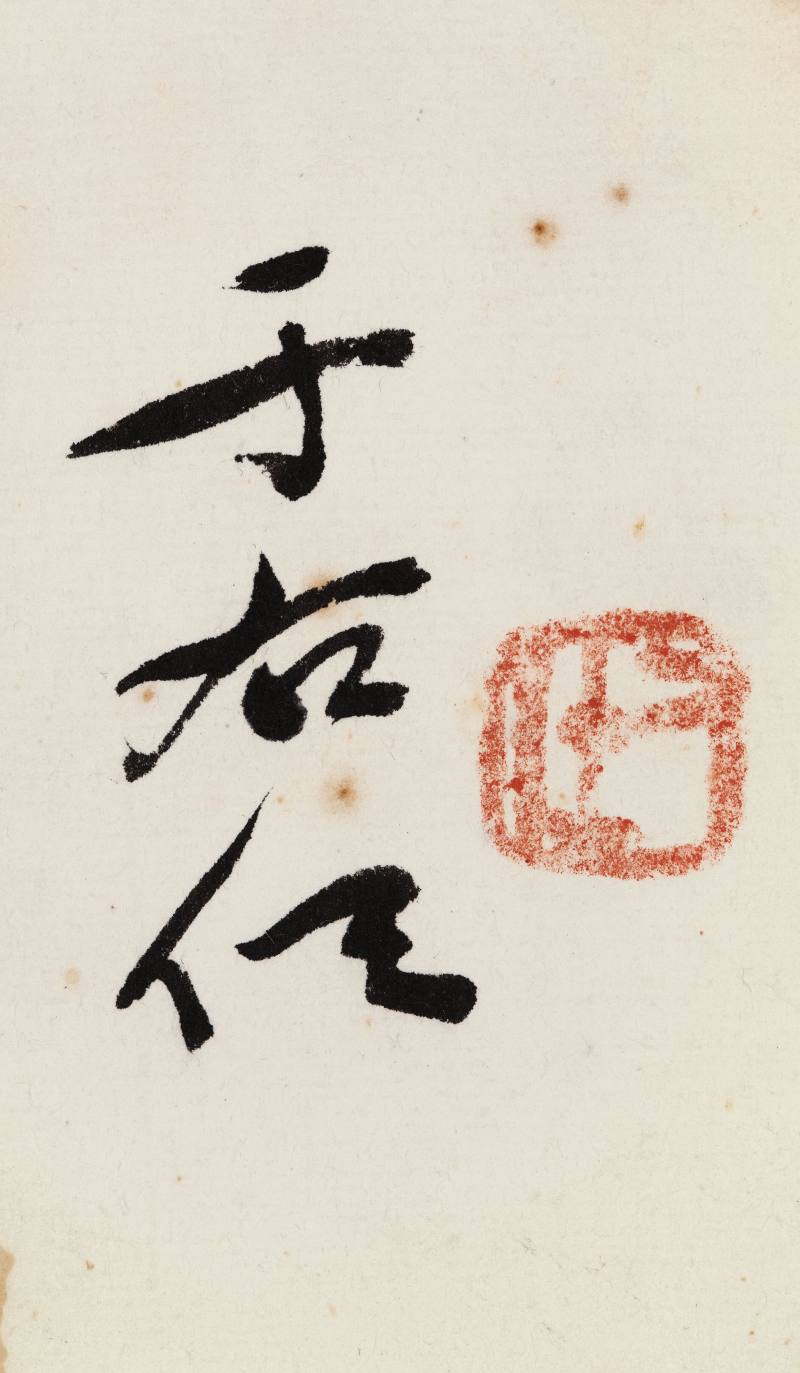 于右任